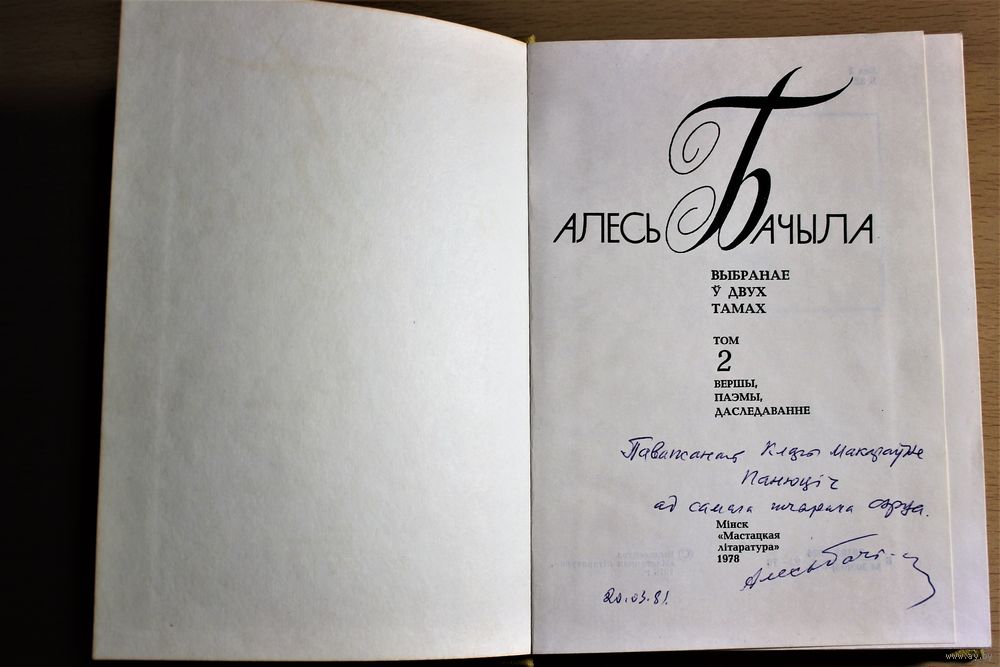 АЛЕСЬ БАЧЫЛА
ВЫБРАНАЕ
Ў ДВУХ
ТАМАХ
ТОМ
2
ВЕРШЫ,
ПАЭМЫ,
ДАСЛЕДАВАННЕ
Паважанай
Панюціч
ад самага шчырага сэрца.
Мінск
«Мастацкая
літаратура»
1978
Алесь Бачы
20.03.81.
www.ay.by